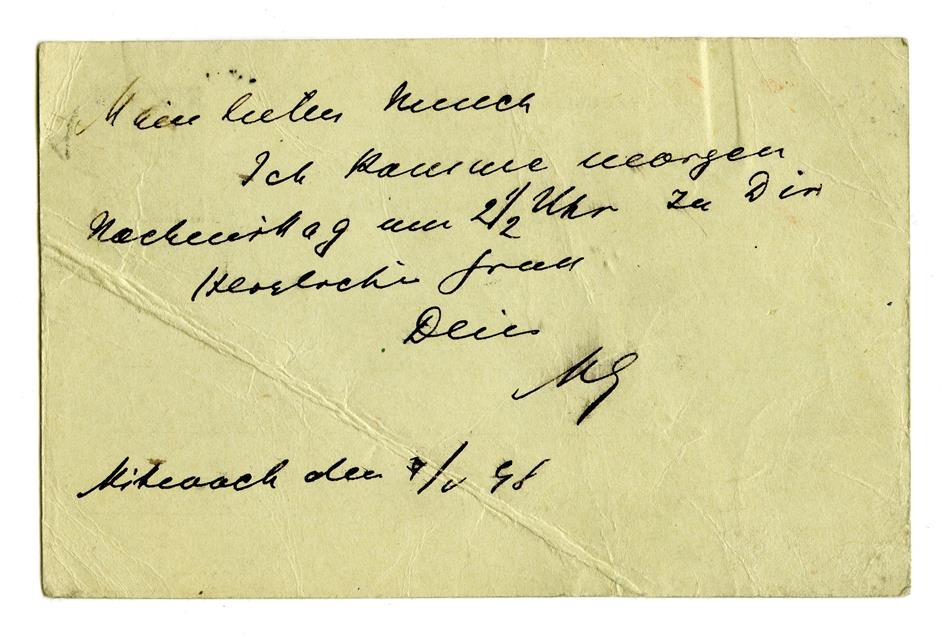 Mein lieber Munch
Ich komme morgen
Nachmittag um 2 1/2 Uhr zu Dir
Herzlichen Gruß
Dein
MG
Mittwoch den /V 98